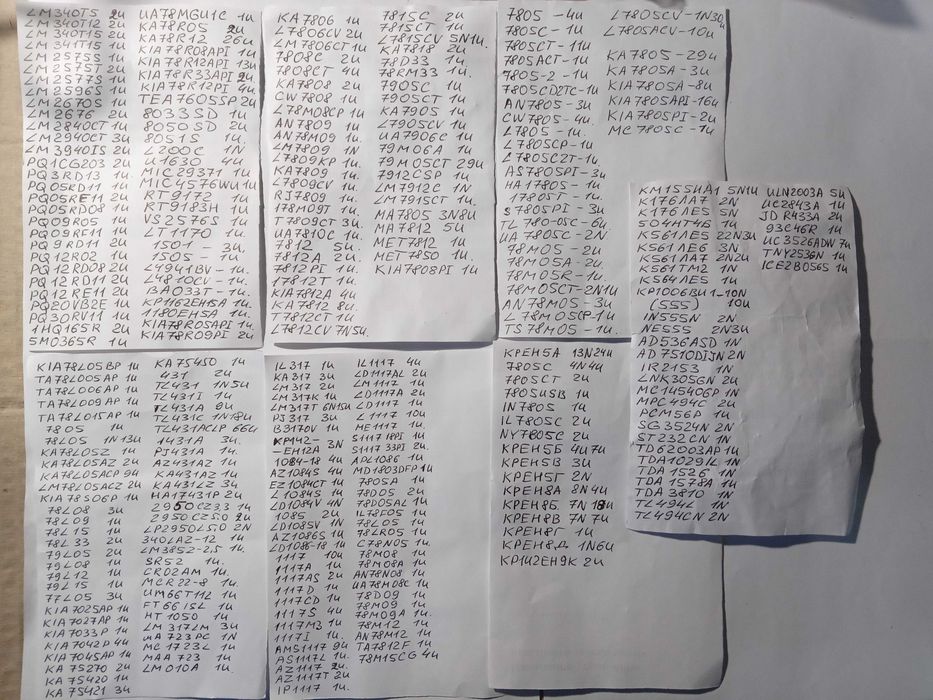 LM340T5 2и
LM340T12 2и
LM340T15 2и
LM341T15 1и
LM2575S 1и
LM2575T 2и
LM2577S 1и
LM2596S 1и
LM2670S 1и
LM2676 2и
LM2840CT 1и
LM2940CT 3и
LM3940IS 2и
PQ1CG203 2и
PQ3RD13 1и
PQ05RD11 1и
PQ05RE11 2и
PQ05RD08 1и
PQ09R05 1и
PQ09RE11 1и
PQ9RD11 2и
PQ12R02 1и
PQ12RD08 2и
PQ12RD11 2и
PQ12RE11 2и
PQ20VB2E 1и
PQ30RV11 1и
1HQ165R 2и
5M0365R 1и
UA78MGU1C 1и
KA78R05 2и
KA78R12 26и
KIA78R08API 1и
KIA78R12API 13и
KIA78R33API 2и
KIA78R12PI 4и
TEA7605SP 2и
8033SD 1и
8050SD 2и
8051S 1и
L200C 1N
U1630 4и
MIC29371 1и
MIC4576WU 1и
RT9172 1и
RT9183H 1и
VS2576S 1и
LT1170 1и
1501 - 3и
1505 - 1и
L4941BV - 1и
L4810CV - 1и
BA033T - 1и
KP1162EH5A 1и
1180EH5A 1и
KIA78R05API 1и
KIA78R09PI 2и
KA7806 1и
L7806CV 2и
LM7806CT 1и
7808C 2и
7808CT 4и
KA7808 2и
CW7808 1и
L78M08CP 1и
AN7809 1и
AN78M09 1и
LM7809 1N
L7809KP 1и
KA7809 1и
L7809CV 1и
RJ7809 1и
178M09T 1и
T7809CT 3и
UA7810C 1и
7812 5и
7812A 2и
7812PI 1и
17812T 1и
KIA7812A 4и
KA7812 8и
T7812CT 1и
L7812CV 7N5и
7815C 2и
7815CT 1и
L7815CV 5N1и
KA7818 2и
78D33 1и
78RM33 1и
7905C 1и
7905CT 1и
KA7905 1и
L7905CV 1и
UA7906C 1и
79M06A 1и
79M05CT 29и
7912CSP 1и
LM7912C 1N
LM7915CT 1и
MA7805 3N8и
MA7812 5и
MET7812 1и
MET7850 1и
KIA7808PI 1и
7805 - 4и
7805C - 1и
7805CT - 11и
7805ACT - 1и
7805-2 - 1и
7805CD2TC - 1и
AN7805 - 3и
CW7805 - 4и
L7805 - 1и
L7805CP - 1и
L7805C2T - 1и
AS7805PI - 3и
HA17805 - 1и
17805T - 1и
S7805PI - 3и
TL780-05C - 6и
UA7805C - 2N
78M05 - 2и
78M05A - 2и
78M05R - 1и
78M05CT - 2N1и
AN78M05 - 3и
L78M05CP - 1и
TS78M05 - 1и
L7805CV - 1N30и
L7805ACV - 10и
KA7805 - 29и
KA7805A - 3и
KIA7805A - 8и
KIA7805API - 16и
KIA7805PI - 2и
MC7805C - 1и
KM155ИA1 5N1и
K176ЛA7 2N
K176ЛE5 5N
504HT1Б 1и
K561ЛE5 22N3и
K561ЛE6 3N
K561ЛA7 2N2и
K561TM2 1N
K564ЛE5 1и
KP1006BИ1 - 10N
(555) 10и
IN555N 2N
NE555 2N3и
AD536ASD 1N
AD7510DIJN 2N
IR2153 1N
LNK305GN 2и
MC145406P 1N
MPC494C 2и
PCM56P 1и
SG3524N 2N
ST232CN 1N
TD62003AP 1и
TDA1029L 1N
TDA1526 1N
TDA1578A 1и
TDA3810 1N
TL494L 1N
TL494CN 2N
ULN2003A 5и
UC2843A 1и
JDR433A 2и
93C46R 1и
UC3526ADW 7и
TNY253GN 1и
ICE2B0565 1и
KIA78L05BP 1и
TA78L005AP 1и
TA78L006AP 1и
TA78L009AP 1и
TA78L015AP 1и
78L05 1и
78L05 1N13и
KA78L05Z 1и
KA78L05AZ 2и
KA78L05ACP 9и
LM78L05ACZ 2и
KIA78S06P 1и
78L08 3и
78L09 1и
78L15 1и
78L33 2и
79L05 2и
79L08 1и
79L12 1и
79L15 1и
77L05 3и
KIA7025AP 1и
KIA7027AP 1и
KIA7033P 1и
KIA7042P 4и
KIA7045AP 1и
KA75270 2и
KA75420 1и
KA75421 3и
KA75450 1и
431 2и
TL431 1N5и
TL431I 1и
TL431A 9и
TL431C 1N18и
TL431ACLP 66и
1431A 3и
PJ431A 1и
AZ431AZ 1и
KA431AZ 1и
KA431LZ 3и
HA17431P 2и
2950CZ3,3 1и
2950CZ50 2и
LP2950L5,0 2N
340LAZ-12 1и
LM385Z-2,5 1и
SR52 1и
CR02AM 1и
MCR22-8 1и
UM66T112 1и
FT6615L 1и
HT1050 1и
LM317LM 3и
MA723PC 1N
MC1723L 1и
MAA723 1и
LM010A 1и
IL317 1и
KA317 3и
LM317 2и
LM317K 1и
LM317T 6N15и
PJ317 3и
B3170V 1и
KP142- 3N
-EH12A
1084-18 4и
AZ1084S 4и
EZ1084CT 1и
L1084S 1и
LD1084V 4N
1085 2и
LD1085V 1N
AZ1086S 1и
LD1086-18 1и
1117 10и
1117A 1и
AZ1117AS 2и
1117D 1и
1117CD 1и
1117S 4и
1117M3 1и
1117I 1и
AMS1117 9и
AS1117L 1и
AZ1117 2и
AZ1117T 2и
IP1117 1и
IL1117 4и
LD1117AL 2и
LM1117 1и
LD1117A 2и
LD1117 1и
L1117 10и
ME1117 1и
S111718PI 1и
S111733PI 2и
APL1086 1и
MD1803DFP 1и
7805A 1и
78D05 2и
78D05AL 1и
IL78F05 1и
78L05 1и
78LR05 1и
L78N05 1и
78M08 1и
78M08A 1и
AN78N08 1и
UA78M08C 1и
78D09 1и
78M09 1и
78M09A 1и
78M12 1и
AN78M12 1и
TA7812F 1и
78M15CG 4и
КРЕН5А 13N24и
7805C 4N4и
7805CT 2и
7805USB 1и
IN7805 1и
IL7805C 2и
NY7805C 2и
КРЕН5Б 4И7и
КРЕН5В 3и
КРЕН5Г 2N
КРЕН8А 8N4и
КРЕН8Б 7N18и
КРЕН8В 7N7и
КРЕН8Г 1и
КРЕН8Д 1N6и
КР142ЕН9К 2и